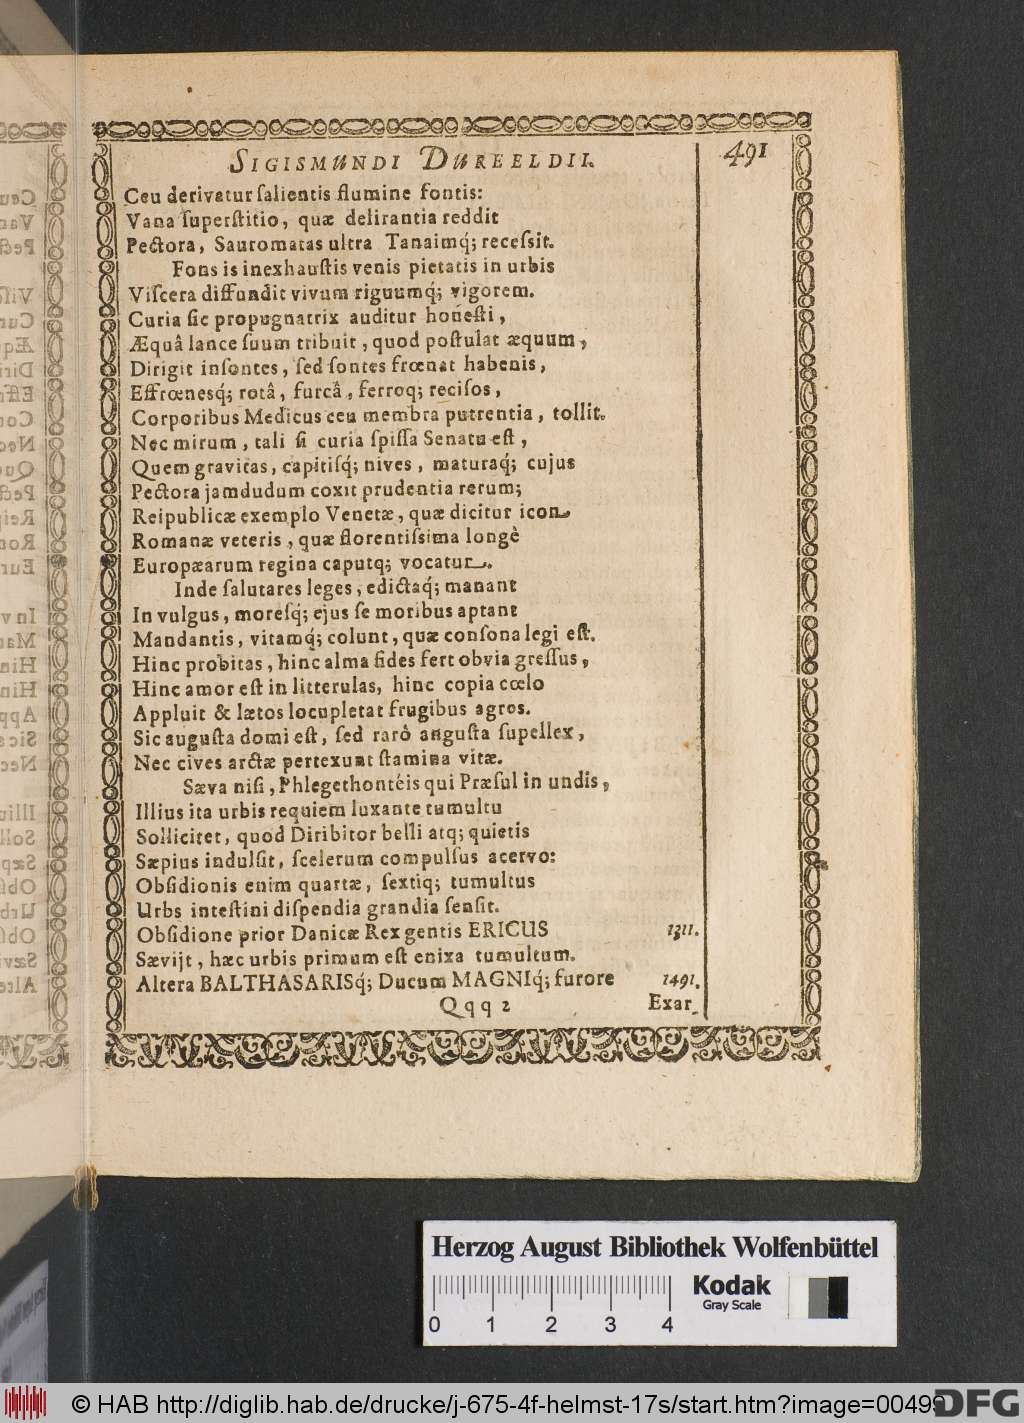 SIGISMUNDI DUREELDII.
491
Ceu derivatur ſalientis flumine fontis:
Vana ſuperſtitio, quæ delirantia reddit
Pectora, Sauromatas ultra Tanaimq́; receſsit.
Fons is inexhauſtis venis pietatis in urbis
Viſcera diffundit vivum riguumq́; vigorem.
Curia ſic propugnatrix auditur honeſti,
Æquâ lance ſuum tribuit, quod poſtulat æquum,
Dirigit inſontes, ſed ſontes frœnat habenis,
Effrœnesq́; rotâ, furcâ, ferroq; reciſos,
Corporibus Medicus ceu membra putrentia, tollit.
Nec mirum, tali ſi curia ſpiſſa Senatu eſt,
Quem gravitas, capitiſq́; nives, maturaq́; cujus
Pectora jamdudum coxit prudentia rerum;
Reipublicæ exemplo Venetæ, quæ dicitur icon
Romanæ veteris, quæ florentiſsima longè
Europæarum regina caputq; vocatur.
Inde ſalutares leges, edictaq́; manant
In vulgus, moreſq́; ejus ſe moribus aptant
Mandantis, vitamq́; colunt, quæ conſona legi eſt.
Hinc probitas, hinc alma fides fert obvia greſſus,
Hinc amor eſt in litterulas, hinc copia cœlo
Appluit & lætos locupletat frugibus agros.
Sic auguſta domi eſt, ſed rarò anguſta ſupellex,
Nec cives arctæ pertexunt ſtamina vitæ.
Sæva niſi, Phlegethontéis qui Præſul in undis,
Illius ita urbis requiem luxante tumultu
Sollicitet, quod Diribitor belli atq; quietis
Sæpius indulſit, ſcelerum compulſus acervo:
Obſidionis enim quartæ, ſextiq; tumultus
Urbs inteſtini diſpendia grandia ſenſit.
Obſidione prior Danicæ Rex gentis ERICUS 1311.
Sævijt, hæc urbis primum eſt enixa tumultum.
Altera BALTHASARISq́; Ducum MAGNIq́; furore 1491.
Qqq 2 Exar
Herzog August Bibliothek Wolfenbüttel
Kodak
Gray Scale
0 1 2 3 4
© HAB http://diglib.hab.de/drucke/j-675-4f-helmst-17s/start.htm?image=00499
DFG